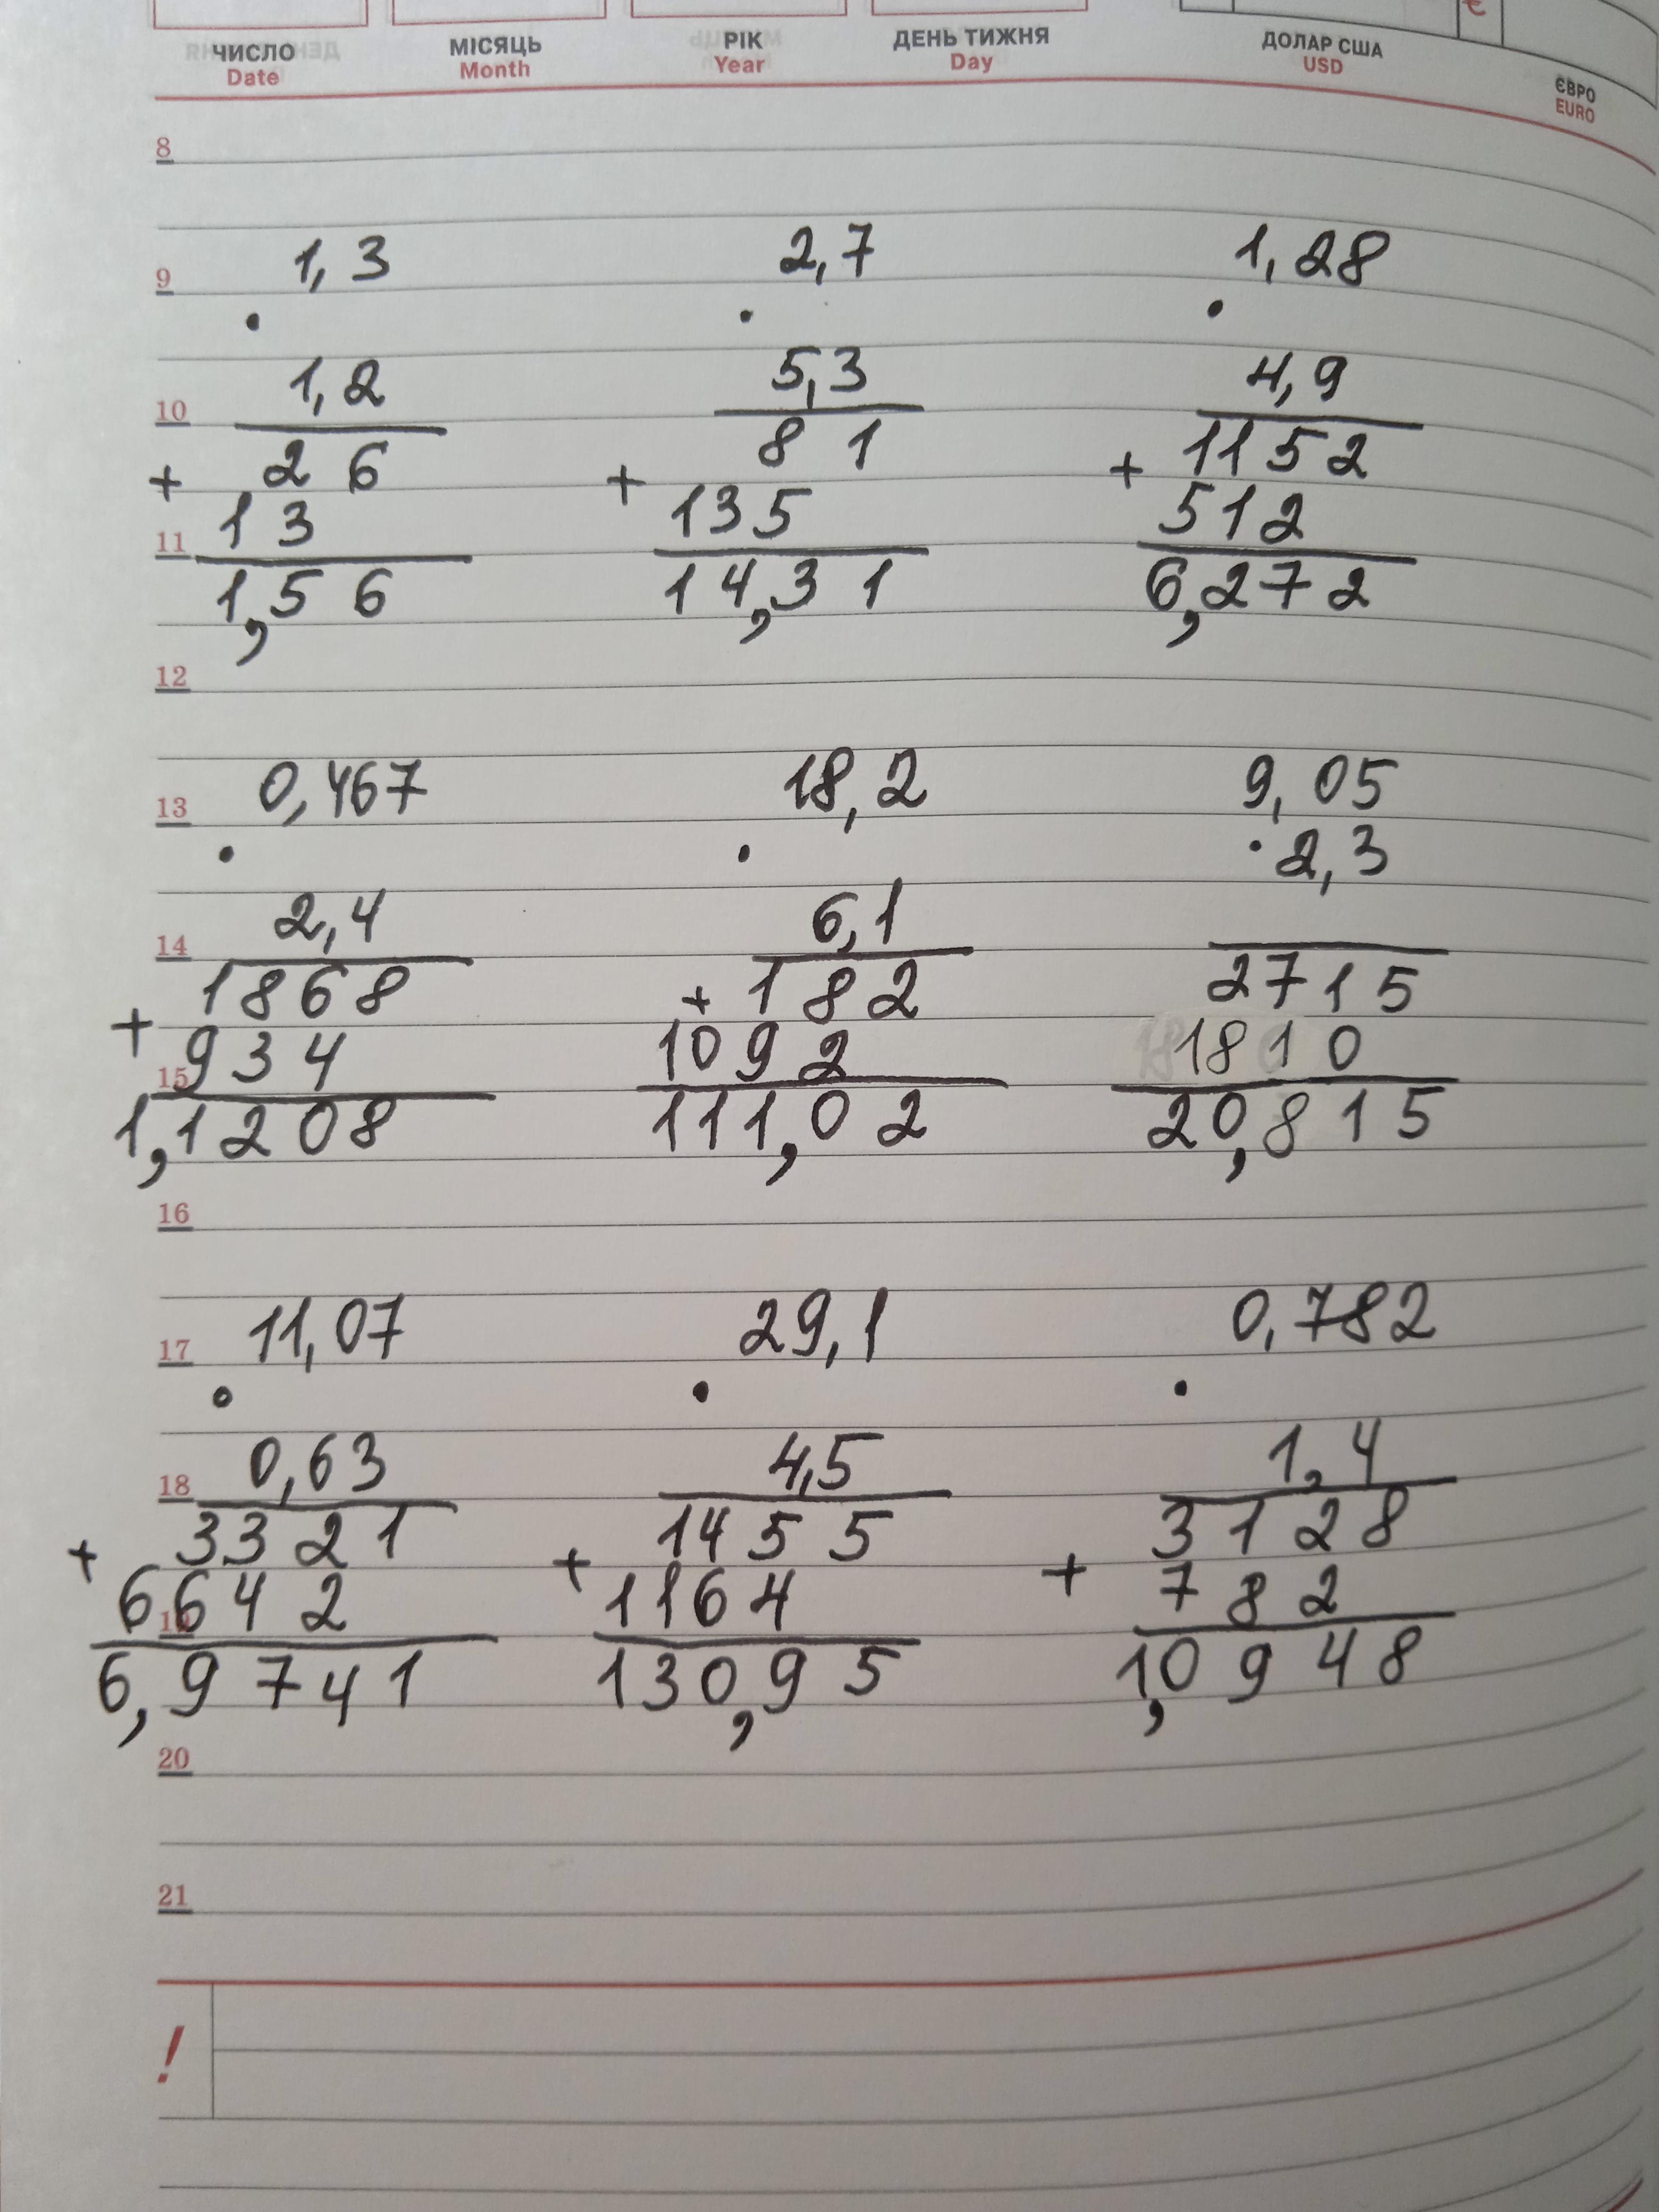 ЧИСЛО МІСЯЦЬ РІК ДЕНЬ ТИЖНЯ ДОЛАР США ЄВРО
Date Month Year Day USD EURO
€
8
9 1,3 2,7 1,28
· · ·
10 1,2 5,3 4,9
+ 26 + 81 + 1152
11 13 135 512
1,56 14,31 6,272
12
13 0,467 18,2 9,05
· · · 2,3
14 2,4 6,1
+ 1868 + 182 2715
15 934 1092 1810
1,1208 111,02 20,815
16
17 11,07 29,1 0,782
· · ·
18 0,63 4,5 1,4
+ 3321 + 1455 + 3128
19 6642 1164 782
6,9741 130,95 1,0948
20
21
!